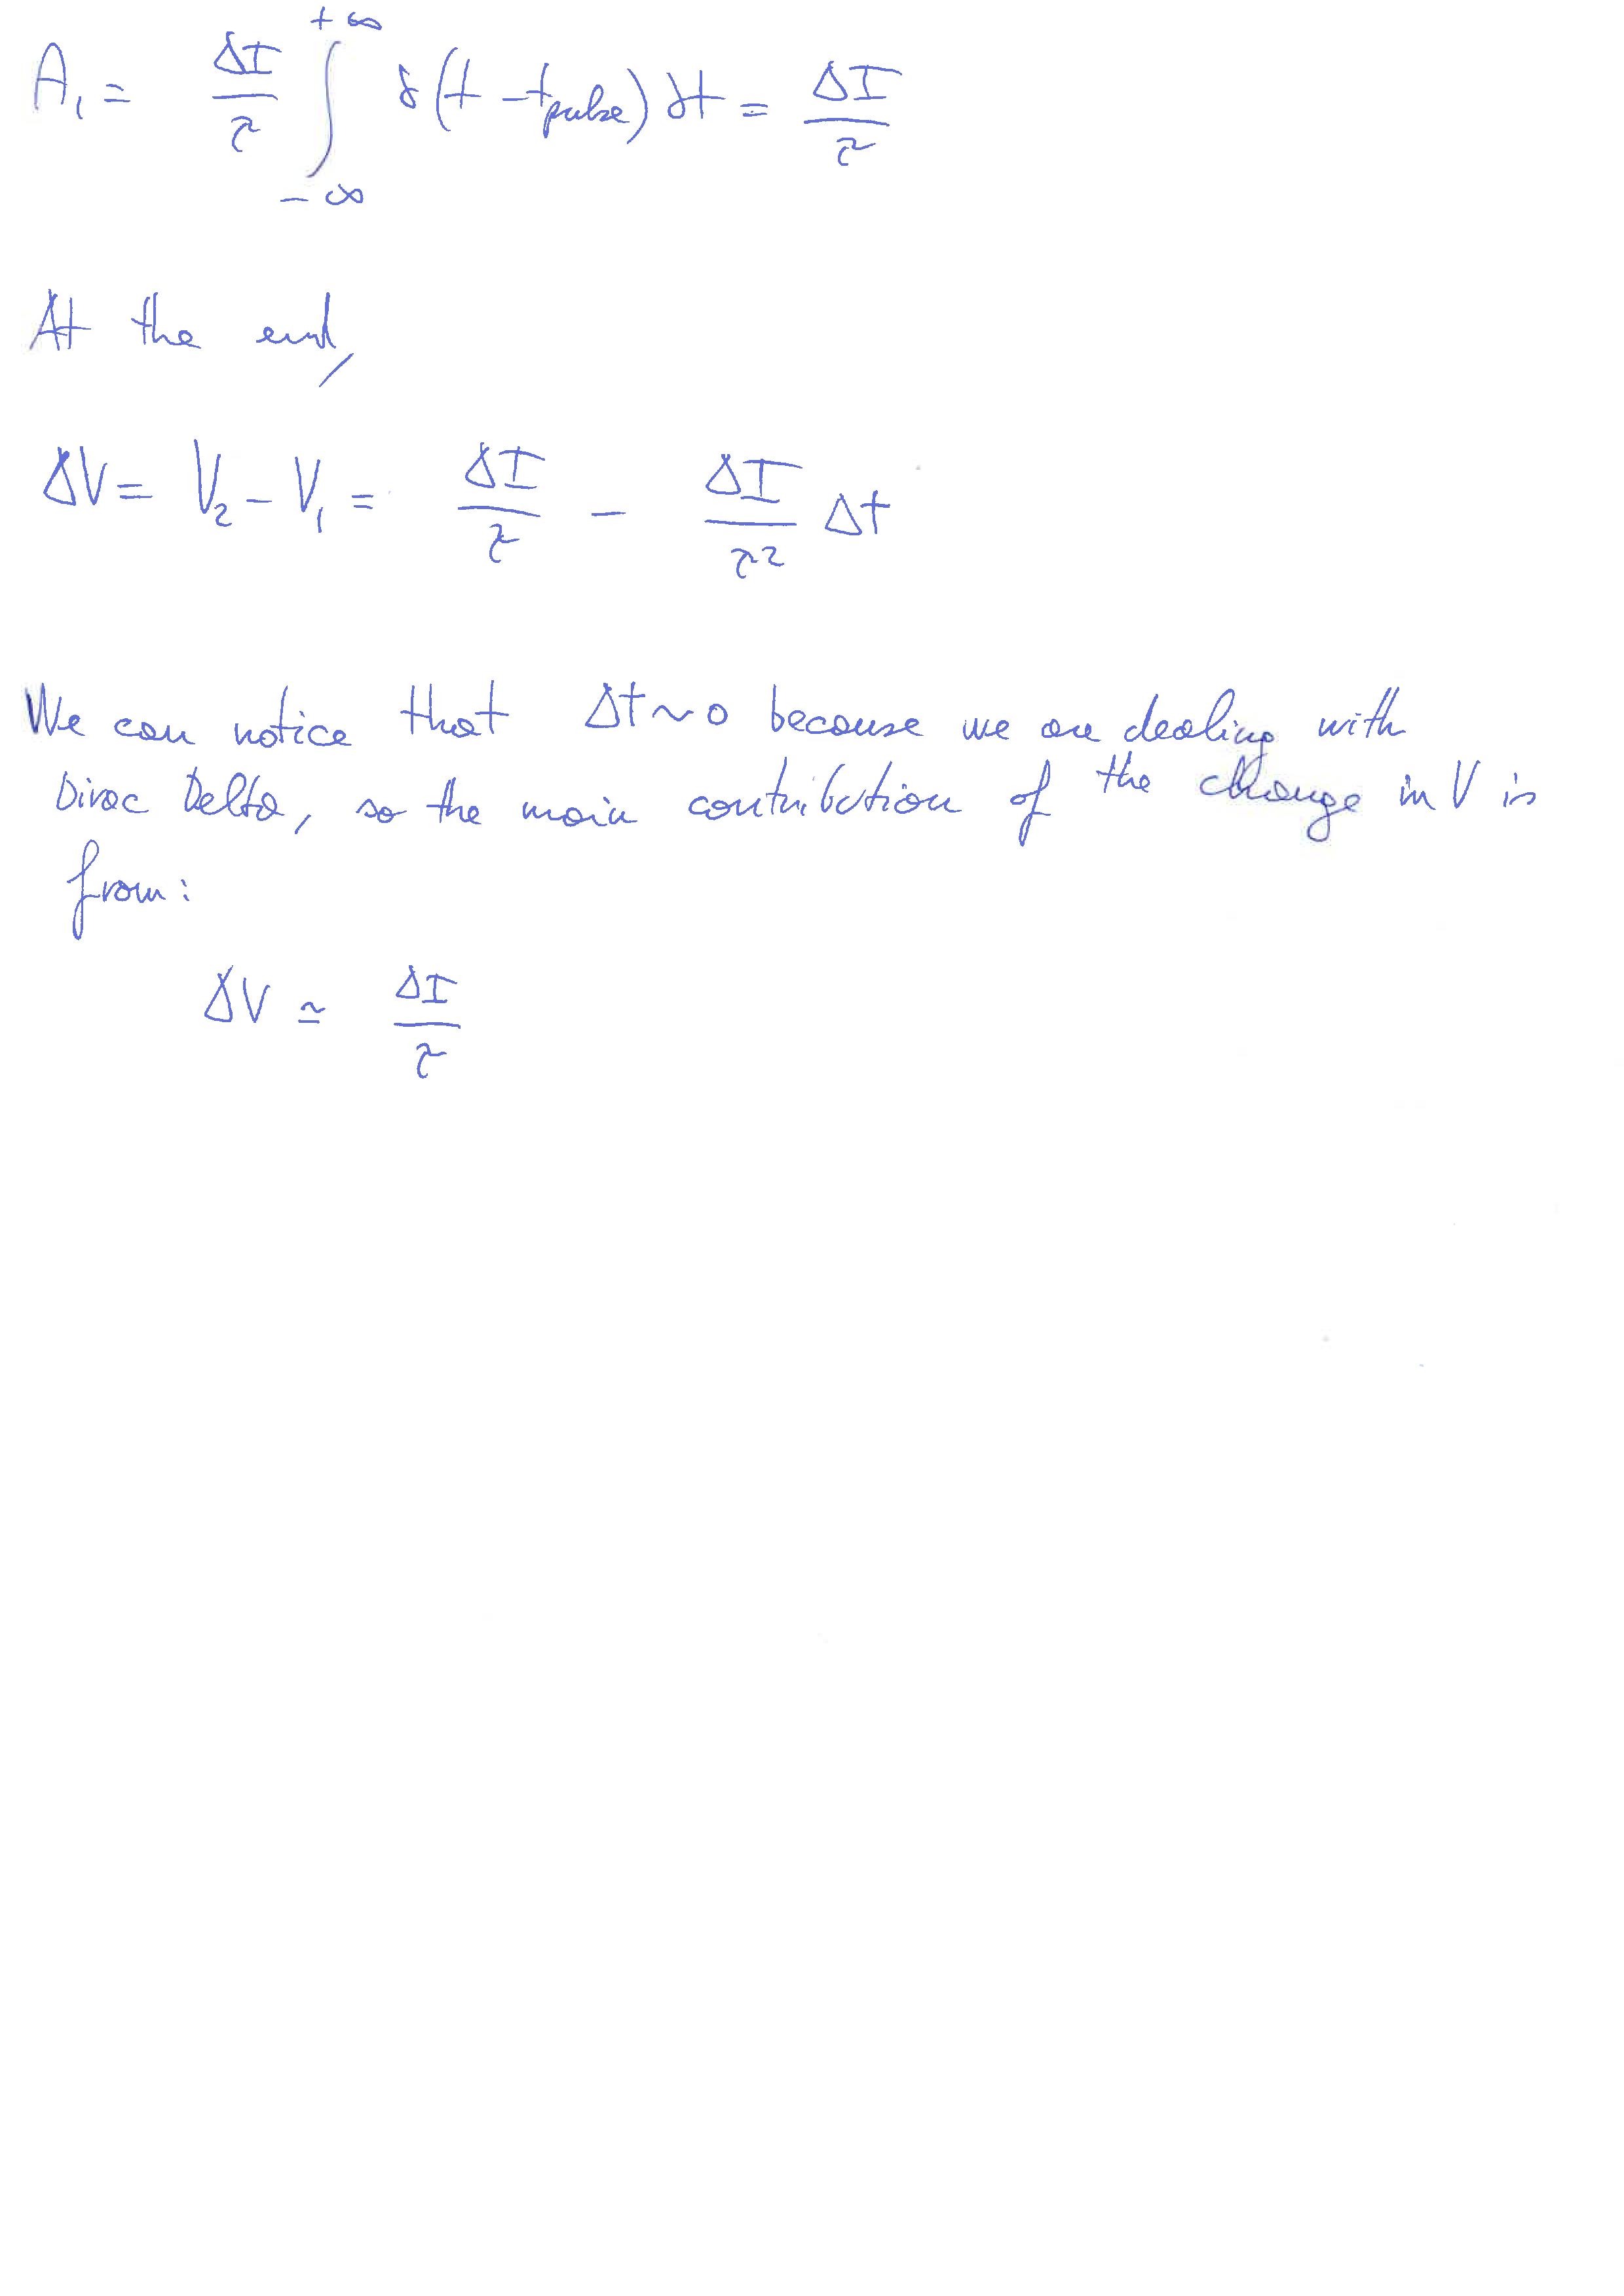 A₁ = ΔI/τ ∫_{-∞}^{+∞} δ(t - t_pulse) dt = ΔI/τ
At the end,
ΔV = V₂ - V₁ = ΔI/τ - ΔI/τ² Δt
We can notice that Δt ~ 0 because we are dealing with
Dirac Delta, so the main contribution of the change in V is
from:
ΔV ≃ ΔI/τ